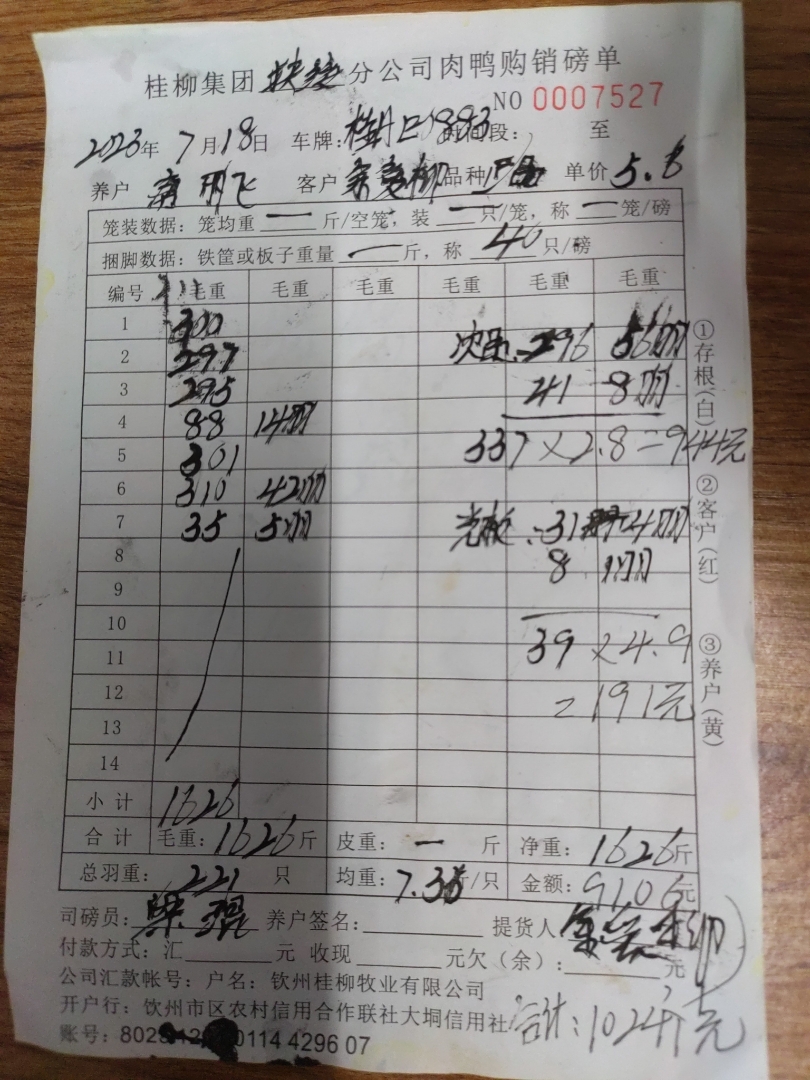 桂柳集团扶绥分公司肉鸭购销磅单
NO 0007527
2023年 7月18日 车牌: 1883 时间段: 至
养户 飞 客户 品种 单价 5.6
笼装数据: 笼均重 一 斤/空笼, 装 一 只/笼, 称 一 笼/磅
捆脚数据: 铁筐或板子重量 一 斤, 称 40 只/磅
编号 毛重 毛重 毛重 毛重 毛重 毛重
1 300
2 297 次品: 296 56只
3 295 41 8只
4 88 14只
5 301 337×2.8=944元
6 310 42只
7 35 5只 光板: 31 4只
8 8 1只
9
10
11 39×4.9
12 =191元
13
14
小计 1626
合计 毛重: 1626斤 皮重: 一 斤 净重: 1626斤
总羽重: 221 只 均重: 7.36斤/只 金额: 9106元
司磅员: 梁琨 养户签名: 提货人
付款方式: 汇 元 收现 元欠(余): 元
公司汇款帐号: 户名: 钦州桂柳牧业有限公司
开户行: 钦州市区农村信用合作联社大垌信用社
合计: 10241元
账号: 802 12 0114 4296 07
①存根(白)
②客户(红)
③养户(黄)